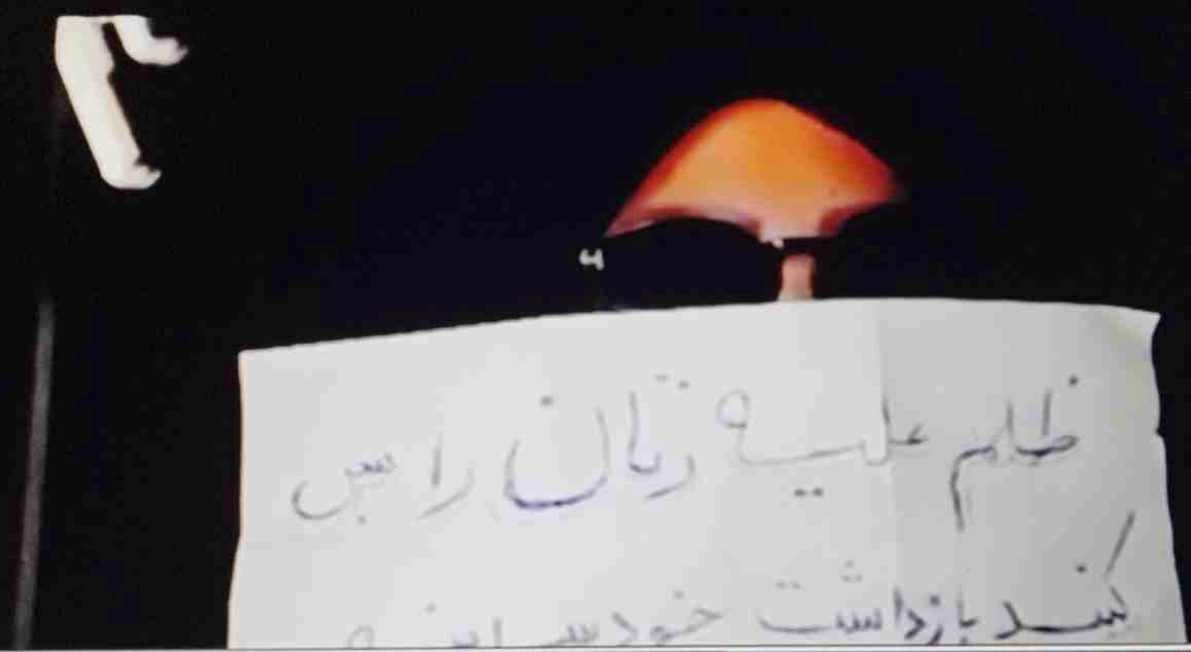 ظلم علیه زنان را بس
کنید بازداشت خودسرانه